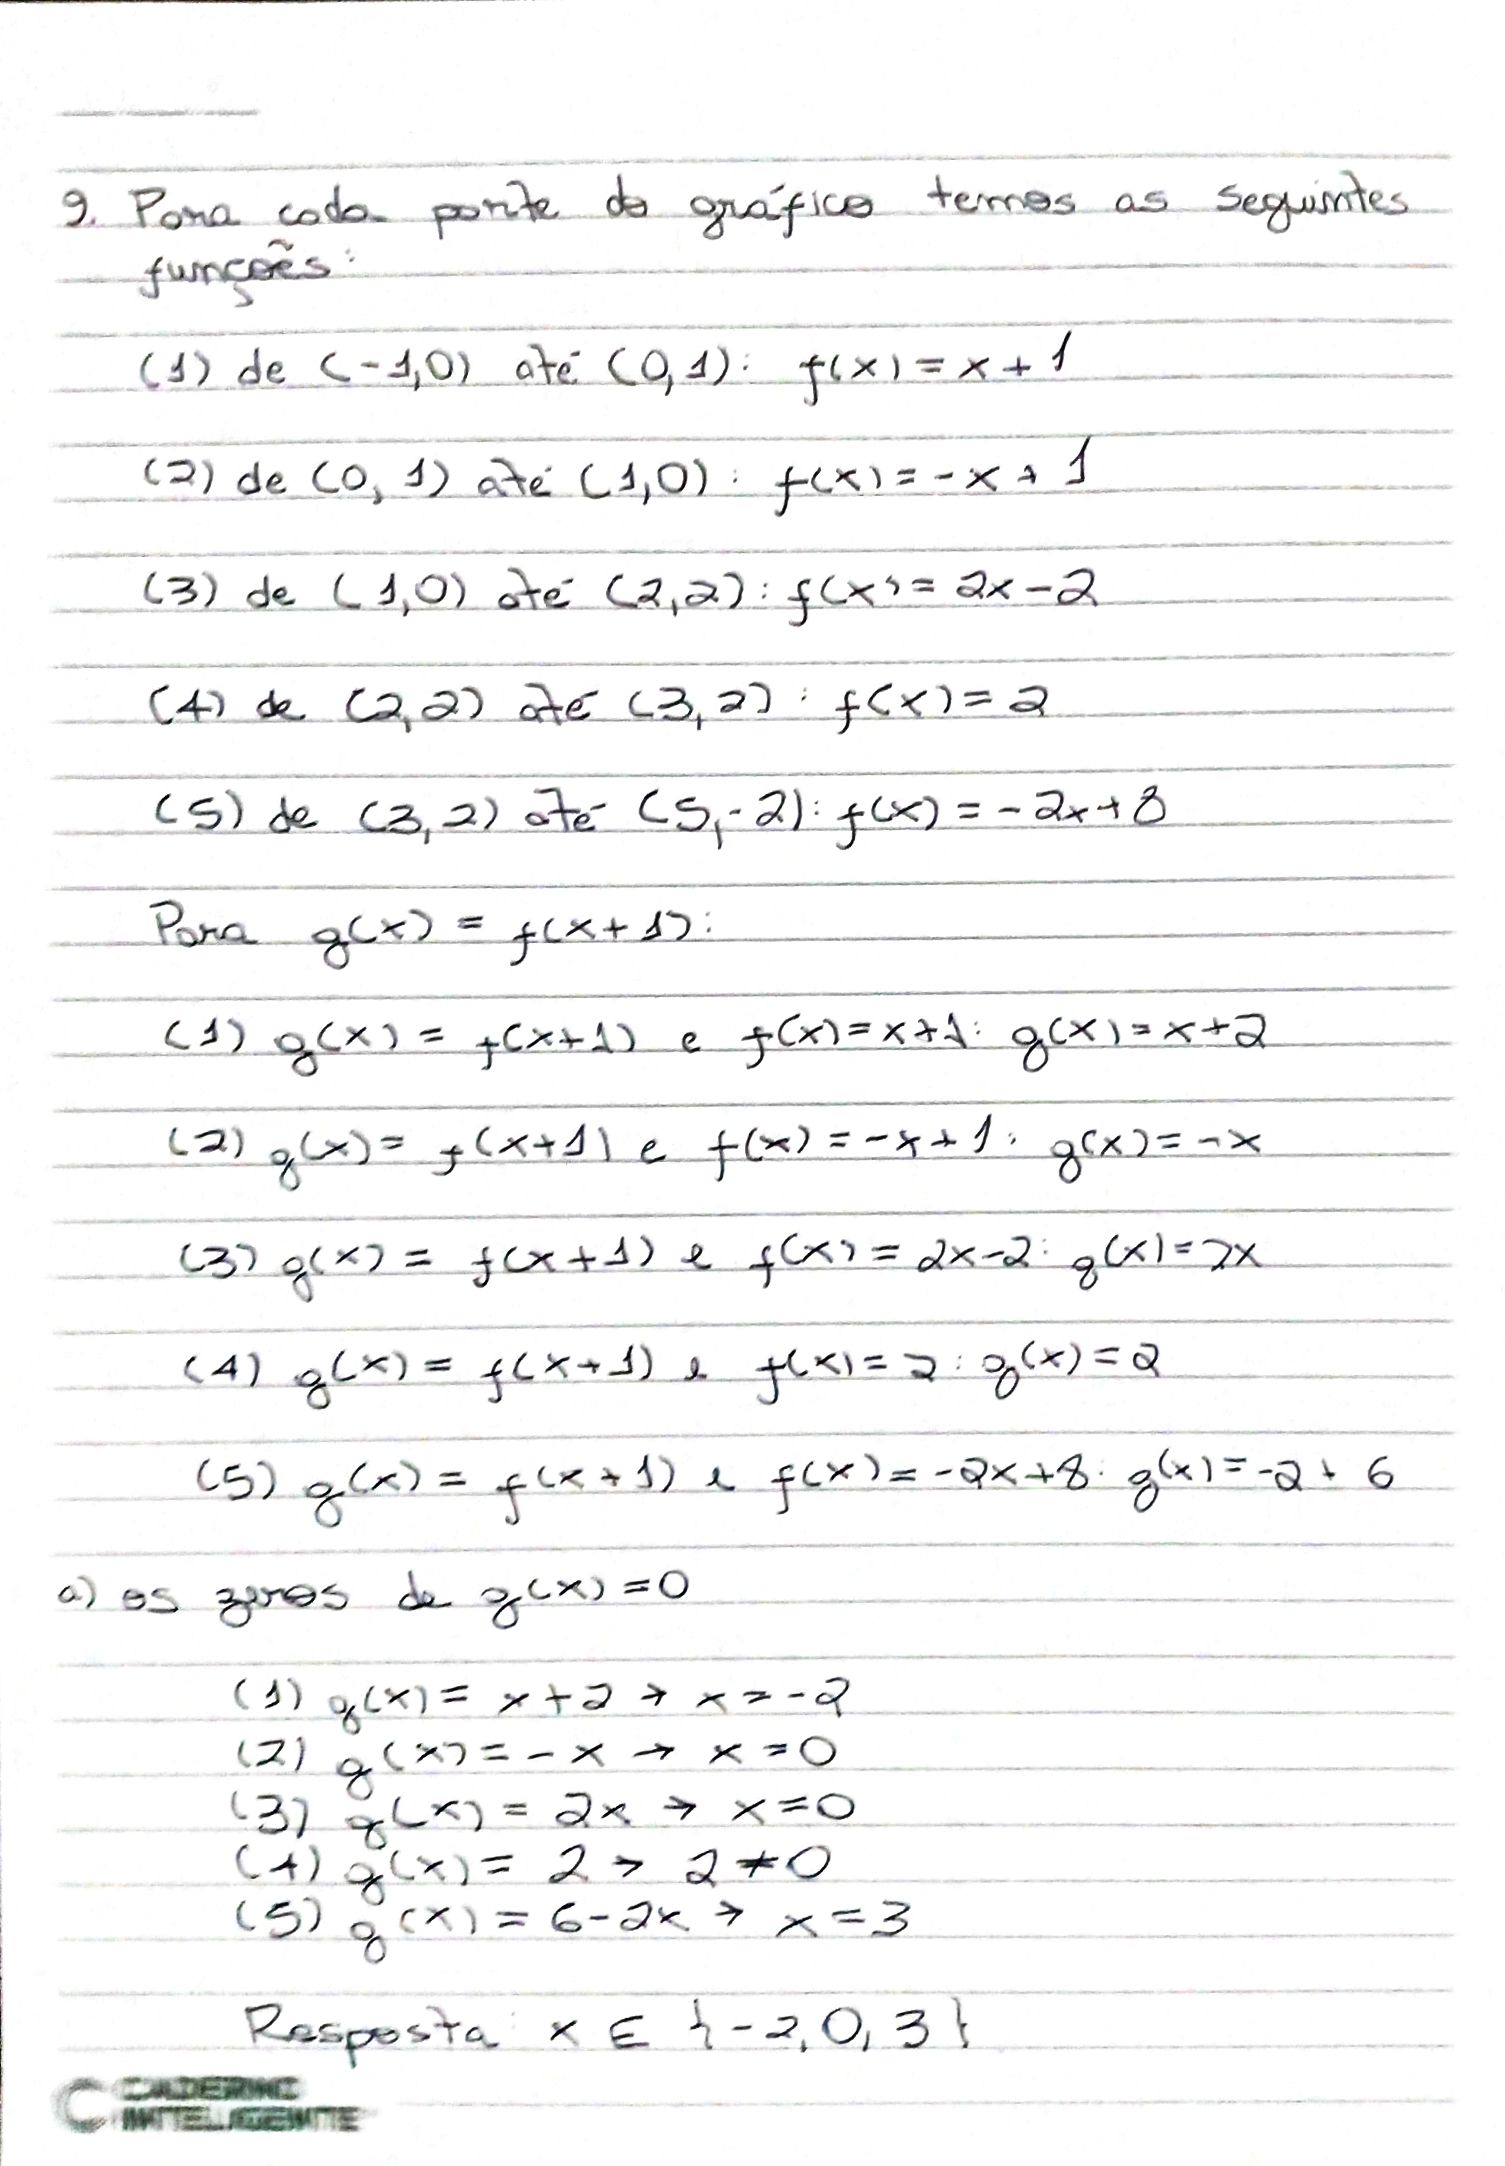 9. Para cada parte do gráfico temos as seguintes
funções:
(1) de (-1,0) até (0,1): f(x) = x + 1
(2) de (0,1) até (1,0): f(x) = -x + 1
(3) de (1,0) até (2,2): f(x) = 2x - 2
(4) de (2,2) até (3,2): f(x) = 2
(5) de (3,2) até (5,-2): f(x) = -2x + 8
Para g(x) = f(x+1):
(1) g(x) = f(x+1) e f(x) = x+1: g(x) = x+2
(2) g(x) = f(x+1) e f(x) = -x+1: g(x) = -x
(3) g(x) = f(x+1) e f(x) = 2x-2: g(x) = 2x
(4) g(x) = f(x+1) e f(x) = 2: g(x) = 2
(5) g(x) = f(x+1) e f(x) = -2x+8: g(x) = -2 + 6
a) os zeros de g(x) = 0
(1) g(x) = x+2 → x = -2
(2) g(x) = -x → x = 0
(3) g(x) = 2x → x = 0
(4) g(x) = 2 → 2 ≠ 0
(5) g(x) = 6-2x → x = 3
Resposta: x ∈ {-2, 0, 3}
CADERNO
INTELIGENTE